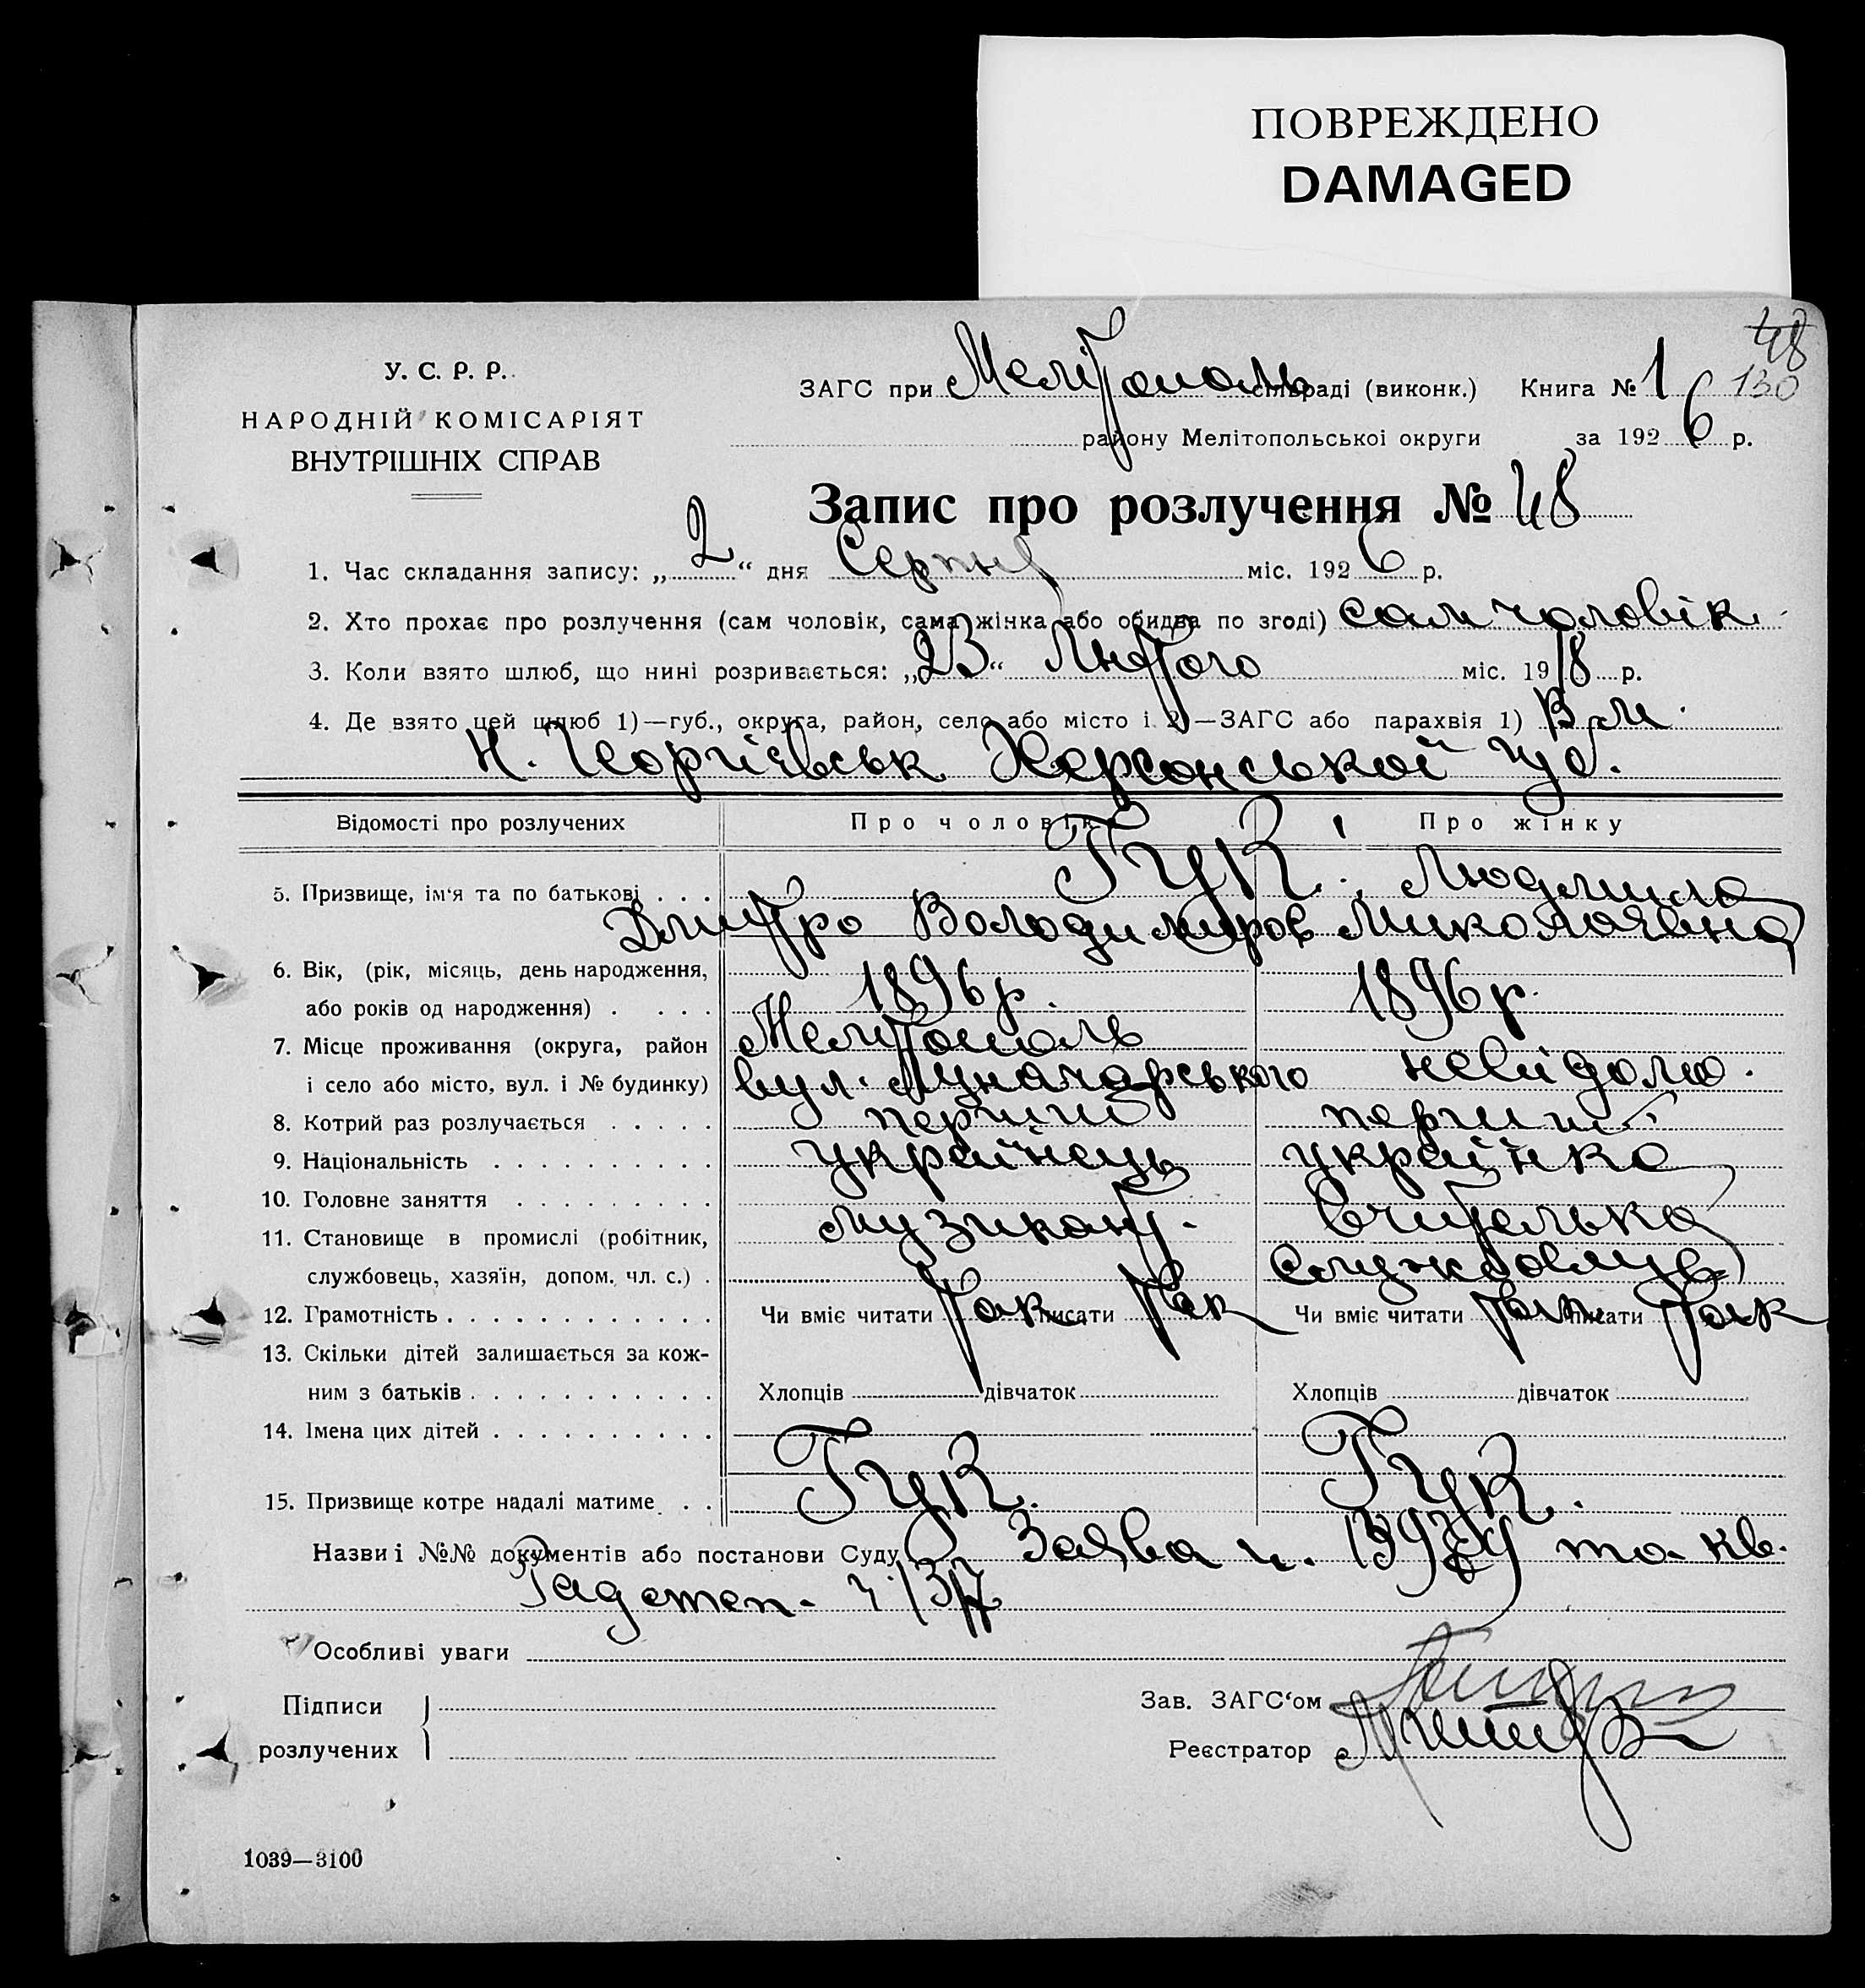 ПОВРЕЖДЕНО
DAMAGED
48
130
У. С. Р. Р.
НАРОДНІЙ КОМІСАРІЯТ
ВНУТРІШНІХ СПРАВ
ЗАГС при Мелітополь сільраді (виконк.) Книга № 1
району Мелітопольської округи за 1926 р.
Запис про розлучення № 48
1. Час складання запису: „2“ дня Серпня міс. 1926 р.
2. Хто прохає про розлучення (сам чоловік, сама жінка або обидва по згоді) сам чоловік.
3. Коли взято шлюб, що нині розривається: „23“ Лютого міс. 1918 р.
4. Де взято цей шлюб 1)—губ., округа, район, село або місто і 2)—ЗАГС або парахвія 1) В м.
Н. Георгіевськ Херсонської губ.
Відомості про розлучених Про чоловіка Про жінку
5. Призвище, ім'я та по батькові . . . Гук. Людмила
Дмитро Володимиров Миколаявна
6. Вік, (рік, місяць, день народження,
або років од народження) . . . . 1896 р. 1896 р.
7. Місце проживання (округа, район Мелітополь
і село або місто, вул. і № будинку) вул. Луначарського невідомо.
8. Котрий раз розлучається . . . . . перший перший
9. Національність . . . . . . . . . . українець українка
10. Головне заняття . . . . . . . . . музикант. вчителька
11. Становище в промислі (робітник,
службовець, хазяїн, допом. чл. с.) . службовець
12. Грамотність . . . . . . . . . . . . Чи вміє читати так писати так Чи вміє читати так писати так
13. Скільки дітей залишається за кож-
ним з батьків . . . . . . . . . . . Хлопців дівчаток Хлопців дівчаток
14. Імена цих дітей . . . . . . . . . .
15. Призвище котре надалі матиме . . Гук. Гук.
Назви і №№ документів або постанови Суду Заява та кв.
Особливі уваги
Підписи
розлучених
Зав. ЗАГС'ом
Реєстратор
1039—3100